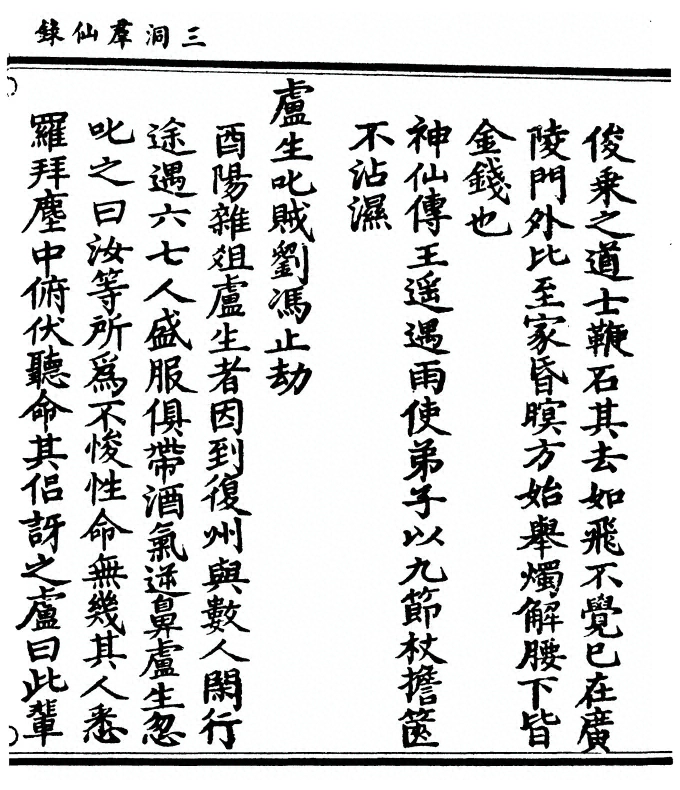 三洞羣仙錄
俊乗之道士鞭石其去如飛不覺已在廣
陵門外比至家昏暝方始舉燭解腰下皆
金錢也
神仙傳王遥遇雨使弟子以九節杖擔篋
不沾濕
盧生叱賊劉馮止劫
酉陽雜俎盧生者因到復州與數人閑行
途遇六七人盛服俱帶酒氣逆鼻盧生忽
叱之曰汝等所爲不悛性命無幾其人悉
羅拜塵中俯伏聽命其侣訝之盧曰此輩